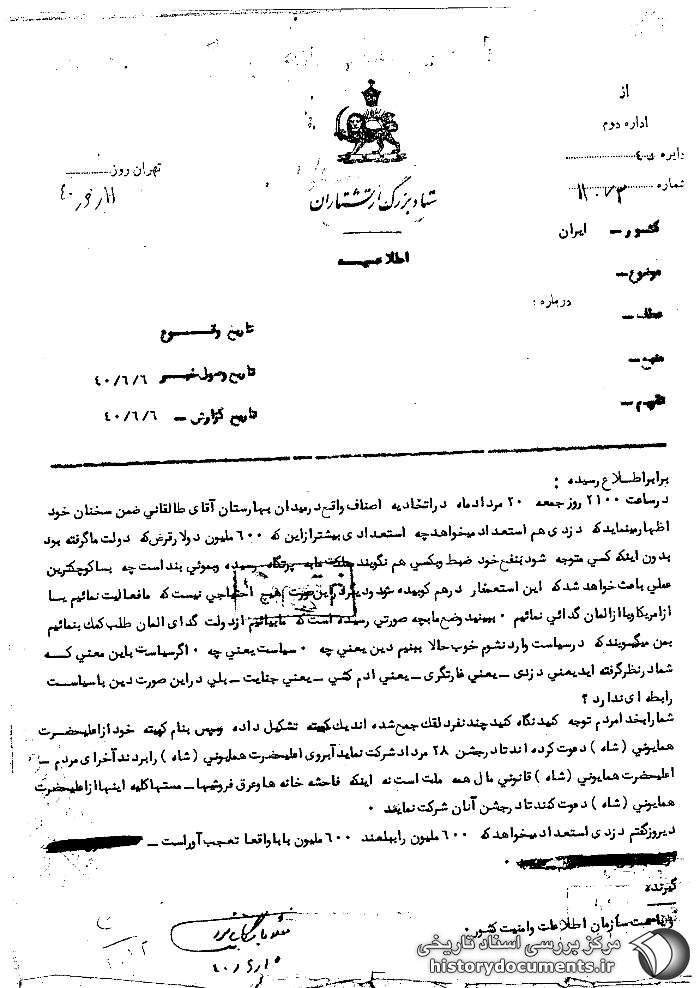 از
اداره دوم
دایره
شماره ۱۱۰۷۳
تهران روز
ستاد بزرگ ارتشتاران
اطلاعیه
کشور – ایران
موضوع –
درباره :
عطف –
منبع –
تقویم –
تاریخ وقوع
تاریخ وصول خبر ۴۰/۶/۶
تاریخ گزارش – ۴۰/۶/۶
برابر اطلاع رسیده :
در ساعت ۲۱۰۰ روز جمعه ۲۰ مرداد ماه در اتحادیه اصناف واقع در میدان بهارستان آقای طالقانی ضمن سخنان خود
اظهار مینماید که دزدی هم استعداد میخواهد چه استعدادی بیشتر از این که ۶۰۰ ملیون دولار قرض که دولت ما گرفته بود
بدون اینکه کسی متوجه شود بنفع خود ضبط و بکسی هم نگویند مملکت ما به پرتگاه رسیده و بموئی بند است چه بسا کوچکترین
عملی باعث خواهد شد که این استعمار در هم کوبیده شود و دیگر در این صورت هیچ احتیاجی نیست که ما فعالیت نمائیم یا
از امریکا و یا از المان گدائی نمائیم ۰ ببینید وضع ما بچه صورتی رسیده است که ما بیائیم از دولت گدای المان طلب کمک بنمائیم
بمن میگویند که در سیاست وارد نشوم خوب حالا ببینم دین یعنی چه ۰ سیاست یعنی چه ۰ اگر سیاست باین معنی که
شما در نظر گرفته اید یعنی دزدی – یعنی غارتگری – یعنی ادم کشی – یعنی جنایت – بلی در این صورت دین با سیاست
رابطه ای ندارد ؟
شما را بخدا مردم توجه کنید نگاه کنید چند نفر لقک جمع شده اند یک کمیته تشکیل داده و سپس بنام کمیته خود از اعلیحضرت
همایونی ( شاه ) دعوت کرده اند تا در جشن ۲۸ مرداد شرکت نماید آبروی اعلیحضرت همایونی ( شاه ) را بردند آخر ای مردم –
اعلیحضرت همایونی ( شاه ) قانونی مال همه ملت است نه اینکه فاحشه خانه ها و عرق فروشیها – مستها کلیه اینها از اعلیحضرت
همایونی ( شاه ) دعوت کنند تا در جشن آنان شرکت نمایند ۰
دیروز گفتم دزدی استعداد میخواهد که ۶۰۰ ملیون را ببلعند ۶۰۰ ملیون بابا واقعا تعجب آور است –
گیرنده
ریاست سازمان اطلاعات و امنیت کشور ۰
مرکز بررسی اسناد تاریخی
historydocuments.ir